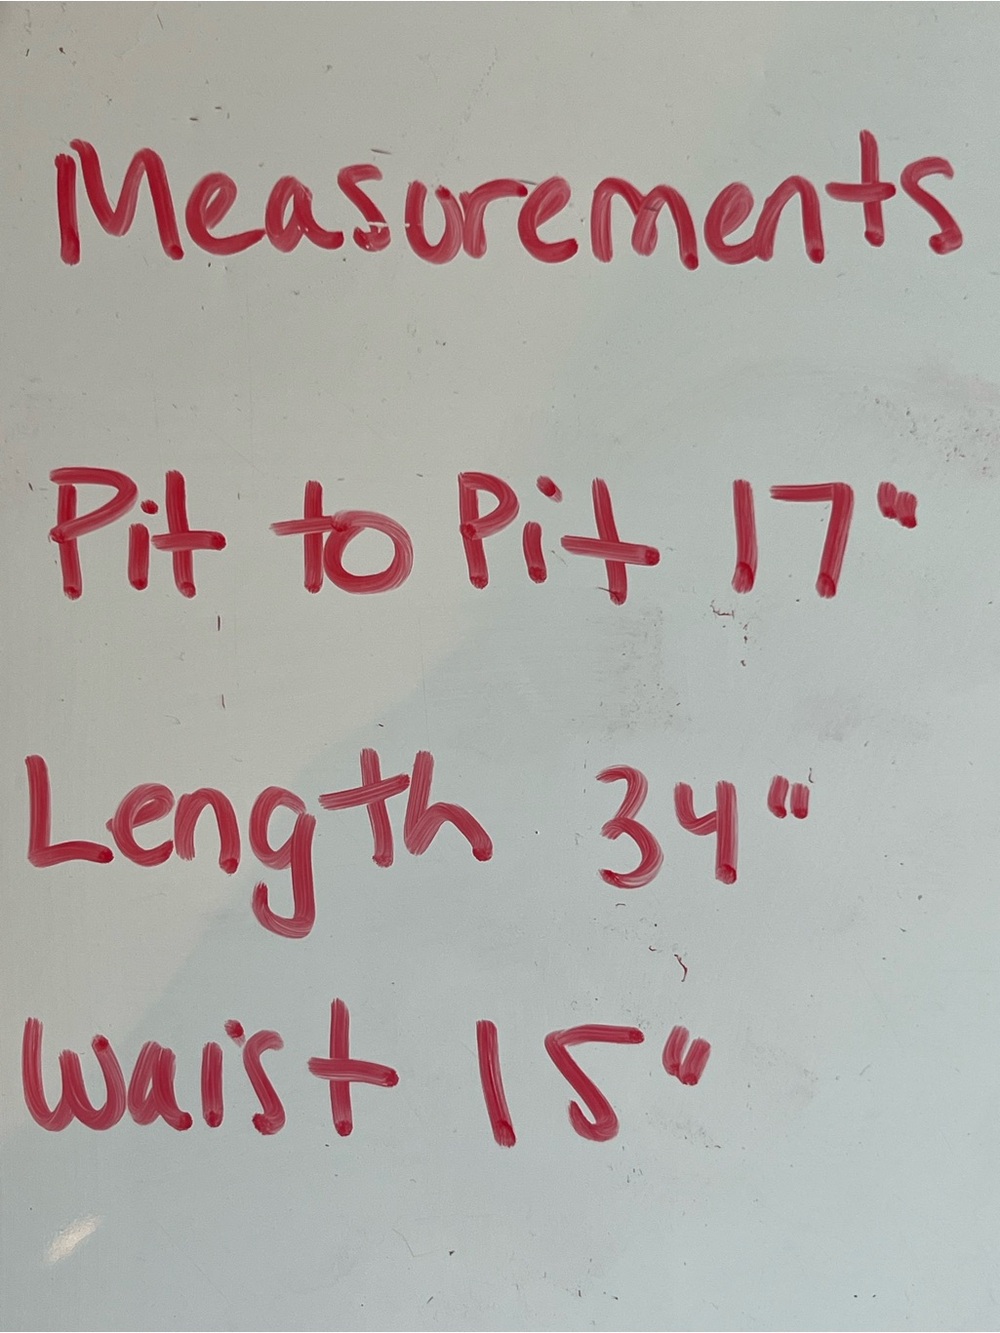 Measurements
Pit to Pit 17"
Length 34"
Waist 15"